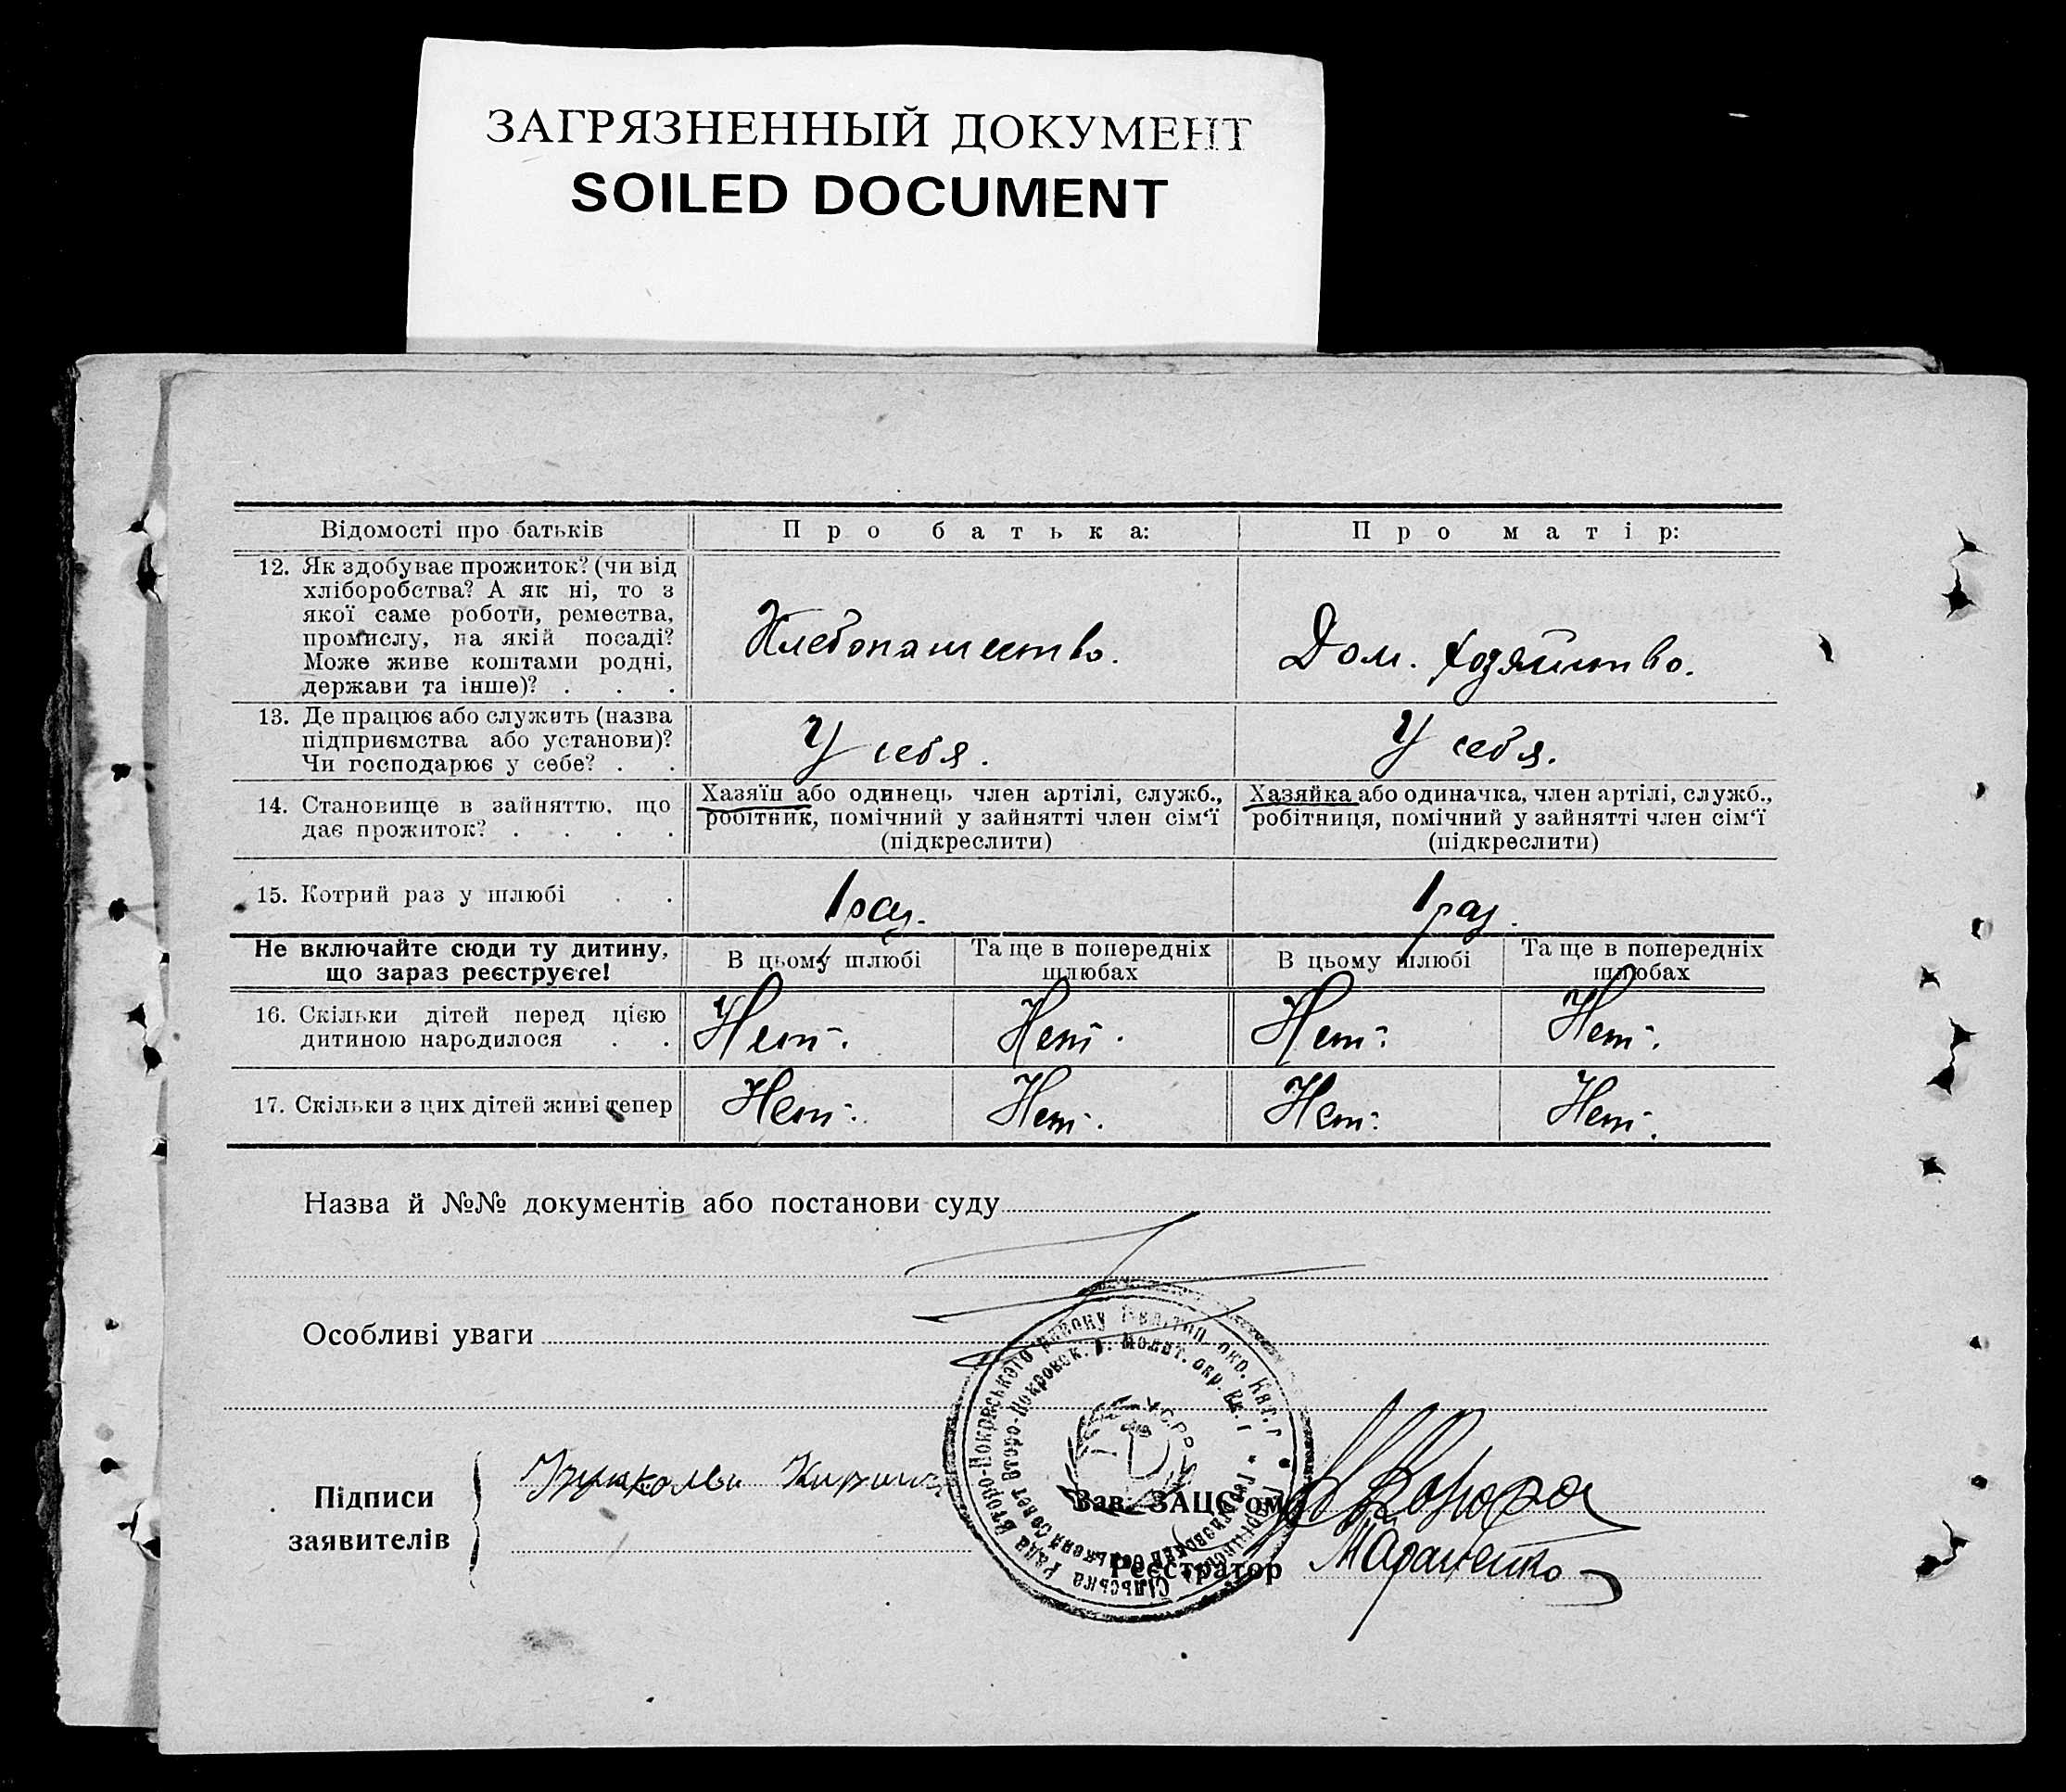 ЗАГРЯЗНЕННЫЙ ДОКУМЕНТ
SOILED DOCUMENT
Відомості про батьків
Про батька:
Про матір:
12. Як здобуває прожиток? (чи від
хліборобства? А як ні, то з
якої саме роботи, ремества,
промислу, на якій посаді?
Може живе коштами родні,
держави та інше)? . . .
Хлебопашество.
Дом. хозяйство.
13. Де працює або служить (назва
підприємства або установи)?
Чи господарює у себе? . .
У себя.
У себя.
14. Становище в зайняттю, що
дає прожиток? . . . .
Хазяїн або одинець член артілі, служб.,
робітник, помічний у зайнятті член сім'ї
(підкреслити)
Хазяйка або одиначка, член артілі, служб.,
робітниця, помічний у зайнятті член сім'ї
(підкреслити)
15. Котрий раз у шлюбі . .
1 раз.
1 раз.
Не включайте сюди ту дитину,
що зараз реєструєте!
В цьому шлюбі
Та ще в попередніх
шлюбах
В цьому шлюбі
Та ще в попередніх
шлюбах
16. Скільки дітей перед цією
дитиною народилося . .
Нет.
Нет.
Нет.
Нет.
17. Скільки з цих дітей живі тепер
Нет.
Нет.
Нет.
Нет.
Назва й №№ документів або постанови суду
Особливі уваги
Сільська Рада Второ-Покрвського району
Второ-Покровск. р.
У.С.Р.Р.
Підписи
заявителів
Зав. ЗАЦС'ом
Реєстратор